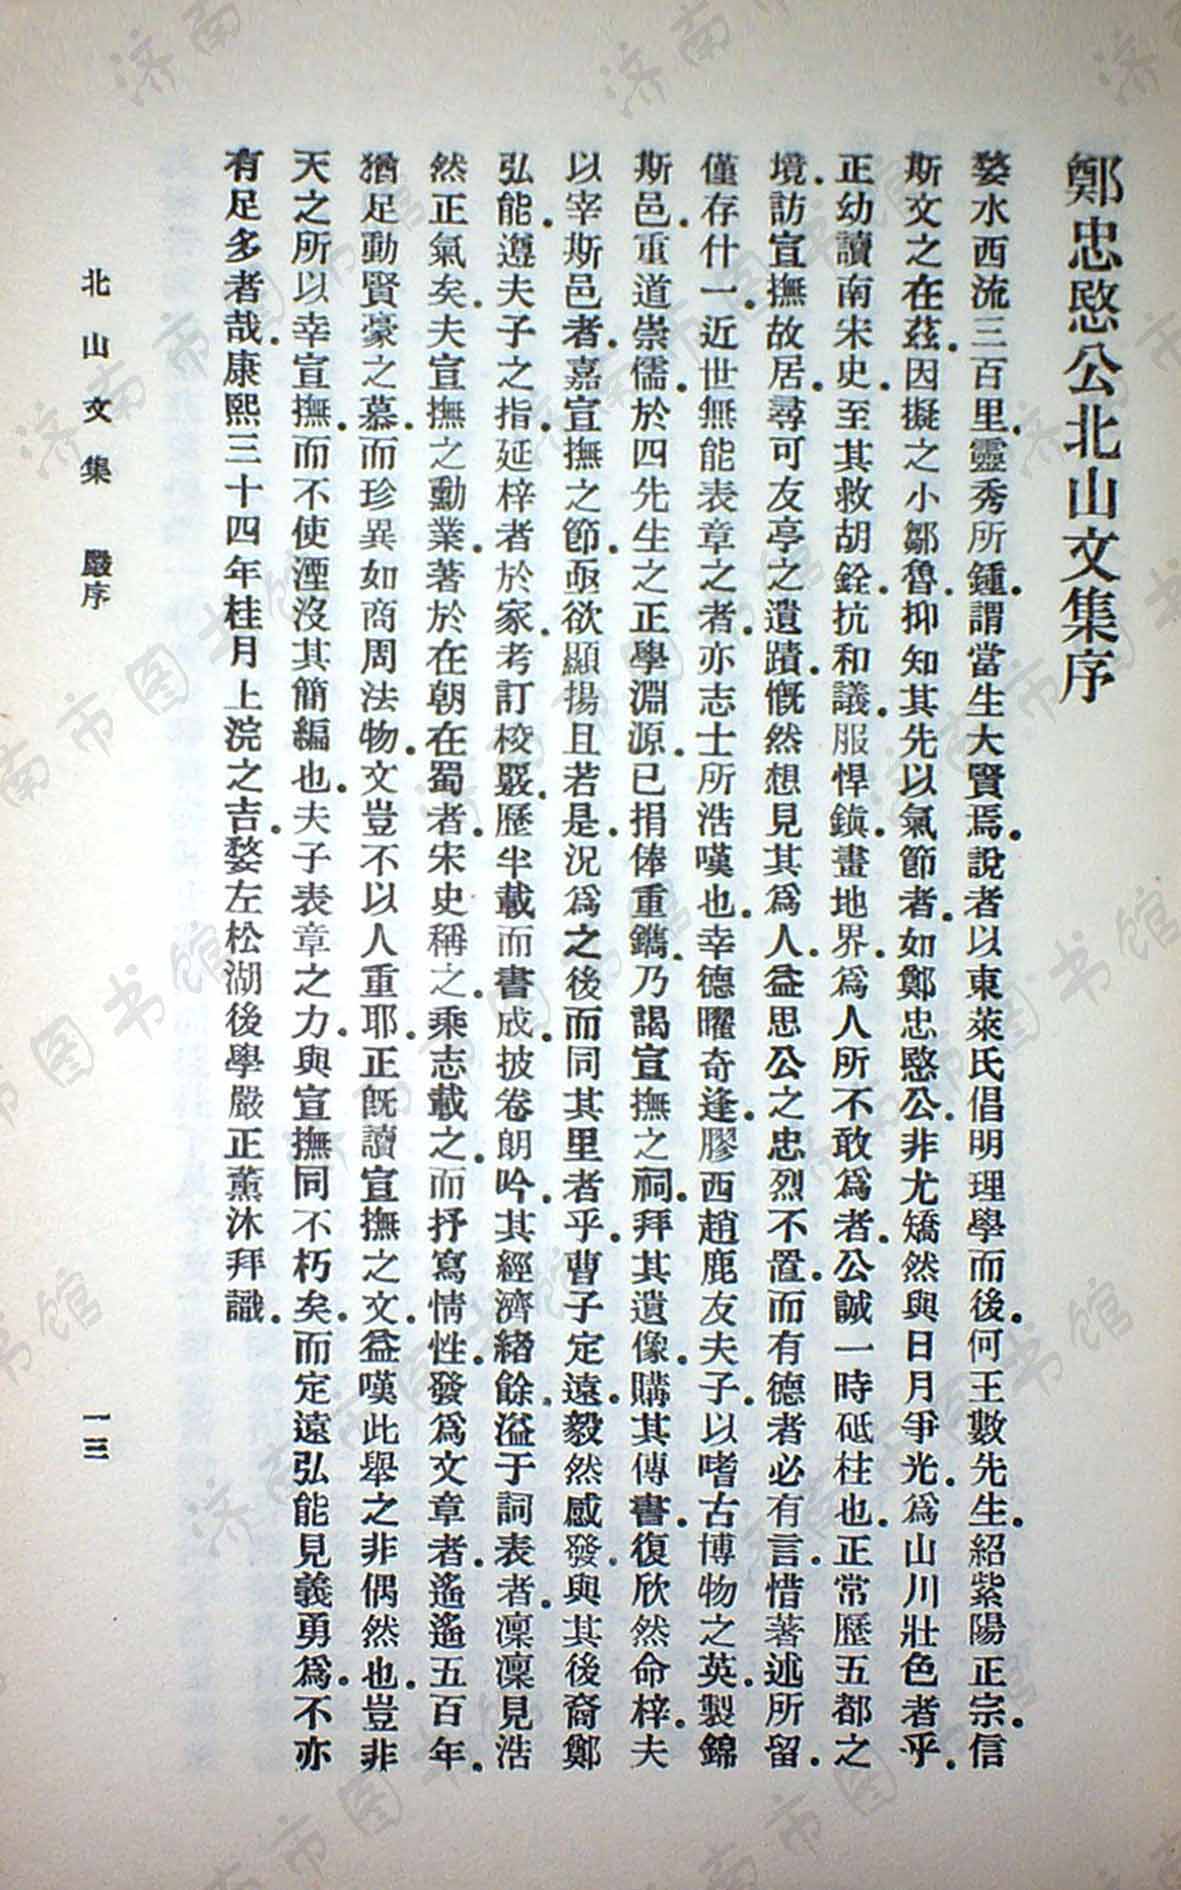 鄭忠愍公北山文集序
婺水西流三百里.靈秀所鍾.謂當生大賢焉.說者以東萊氏倡明理學而後.何王數先生.紹紫陽正宗.信
斯文之在茲.因擬之小鄒魯.抑知其先以氣節者.如鄭忠愍公.非尤矯然與日月爭光.爲山川壯色者乎.
正幼讀南宋史.至其救胡銓.抗和議.服悍鎮.畫地界.爲人所不敢爲者.公誠一時砥柱也.正常歷五都之
境.訪宣撫故居.尋可友亭之遺蹟.慨然想見其爲人.益思公之忠烈不置.而有德者必有言.惜著述所留.
僅存什一.近世無能表章之者.亦志士所浩嘆也.幸德曜奇逢.膠西趙鹿友夫子.以嗜古博物之英.製錦
斯邑.重道崇儒.於四先生之正學淵源.已捐俸重鐫.乃謁宣撫之祠.拜其遺像.購其傳書.復欣然命梓.夫
以宰斯邑者.嘉宣撫之節.亟欲顯揚且若是.況爲之後而同其里者乎.曹子定遠.毅然感發.與其後裔鄭
弘能.遵夫子之指.延梓者於家.考訂校覈.歷半載而書成.披卷朗吟.其經濟緖餘.溢于詞表者.凜凜見浩
然正氣矣.夫宣撫之勳業.著於在朝在蜀者.宋史稱之.乘志載之.而抒寫情性.發爲文章者.遙遙五百年.
猶足動賢豪之慕.而珍異如商周法物.文豈不以人重耶.正旣讀宣撫之文.益嘆此舉之非偶然也.豈非
天之所以幸宣撫.而不使湮沒其簡編也.夫子表章之力.與宣撫同不朽矣.而定遠弘能見義勇爲.不亦
有足多者哉.康熙三十四年桂月上浣之吉.婺左松湖後學嚴正薰沐拜識.
北山文集 嚴序
一三
济南市图书馆